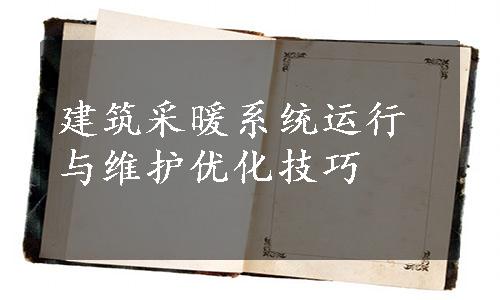 建筑采暖系统运行
与维护优化技巧